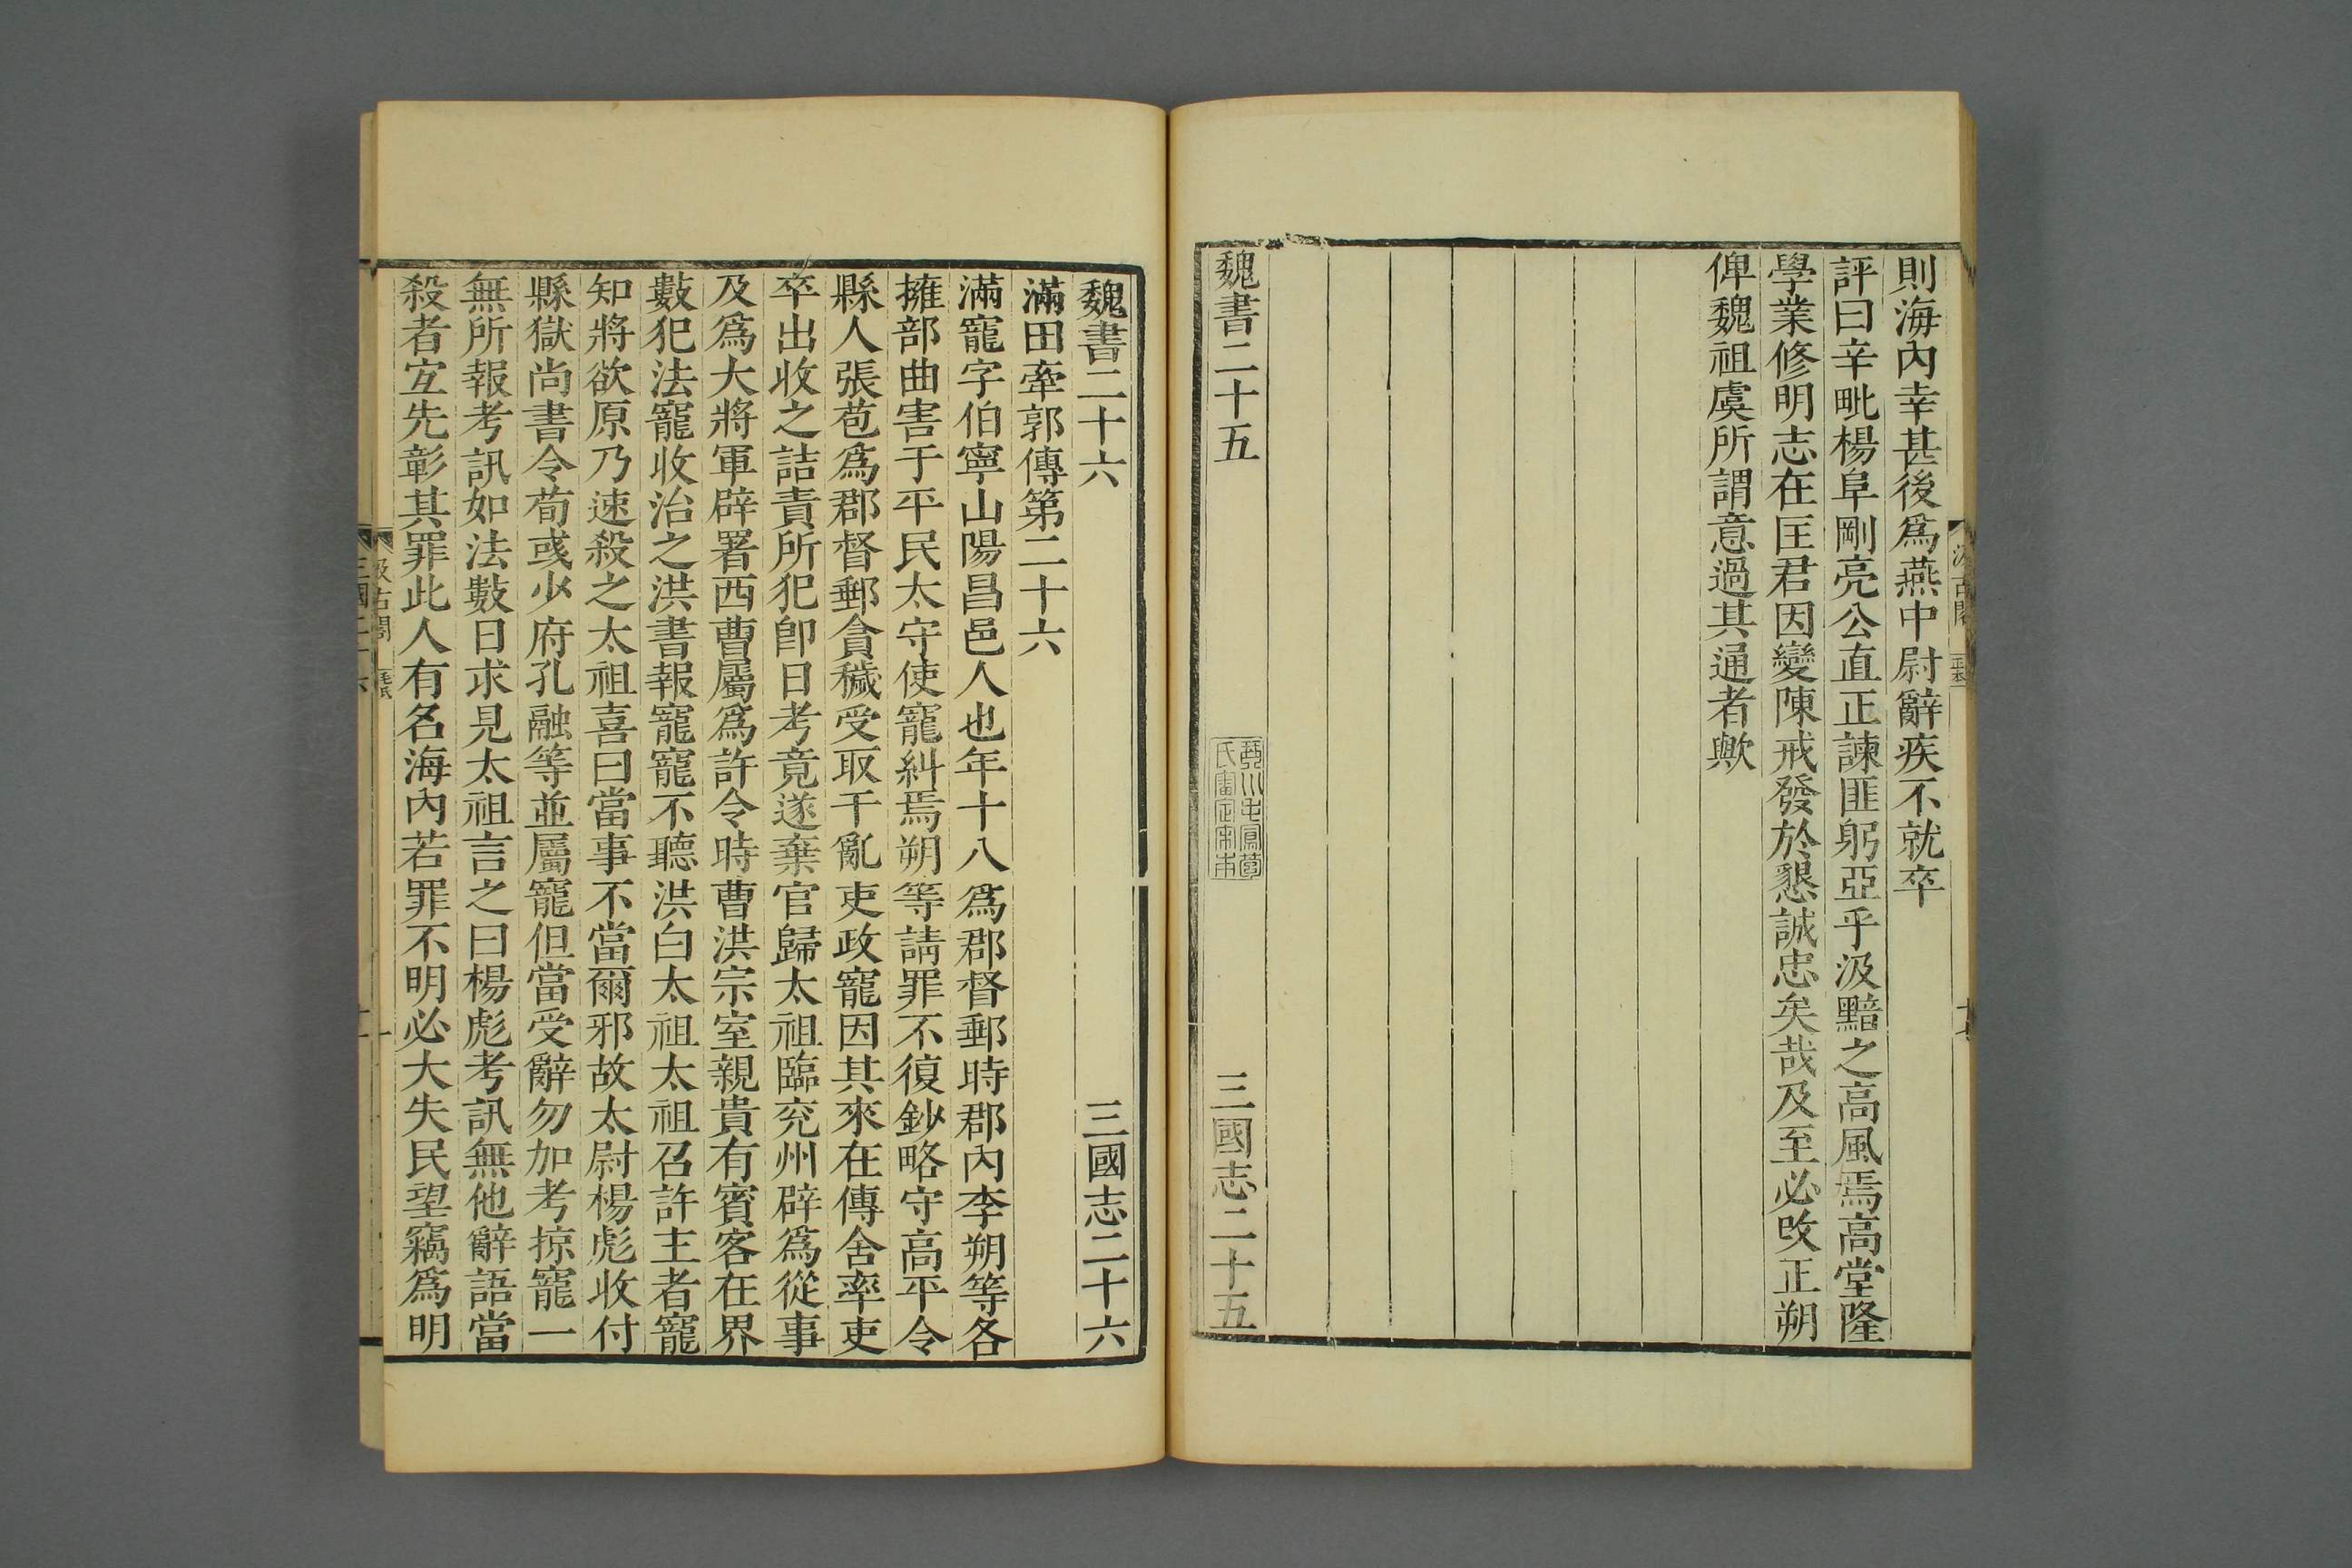 則海內幸甚後爲燕中尉辭疾不就卒
評曰辛毗楊阜剛亮公直正諫匪躬亞乎汲黯之高風焉高堂隆
學業修明志在匡君因變陳戒發於懇誠忠矣哉及至必改正朔
俾魏祖虞所謂意過其通者歟
魏書二十五
三國志二十五
魏書二十六
三國志二十六
滿田牽郭傳第二十六
滿寵字伯寧山陽昌邑人也年十八爲郡督郵時郡內李朔等各
擁部曲害于平民太守使寵糾焉朔等請罪不復鈔略守高平令
縣人張苞爲郡督郵貪穢受取干亂吏政寵因其來在傳舍率吏
卒出收之詰責所犯卽日考竟遂棄官歸太祖臨兖州辟爲從事
及爲大將軍辟署西曹屬爲許令時曹洪宗室親貴有賓客在界
數犯法寵收治之洪書報寵寵不聽洪白太祖太祖召許主者寵
知將欲原乃速殺之太祖喜曰當事不當爾邪故太尉楊彪收付
縣獄尚書令荀彧少府孔融等並屬寵但當受辭勿加考掠寵一
無所報考訊如法數日求見太祖言之曰楊彪考訊無他辭語當
殺者宐先彰其罪此人有名海內若罪不明必大失民望竊爲明